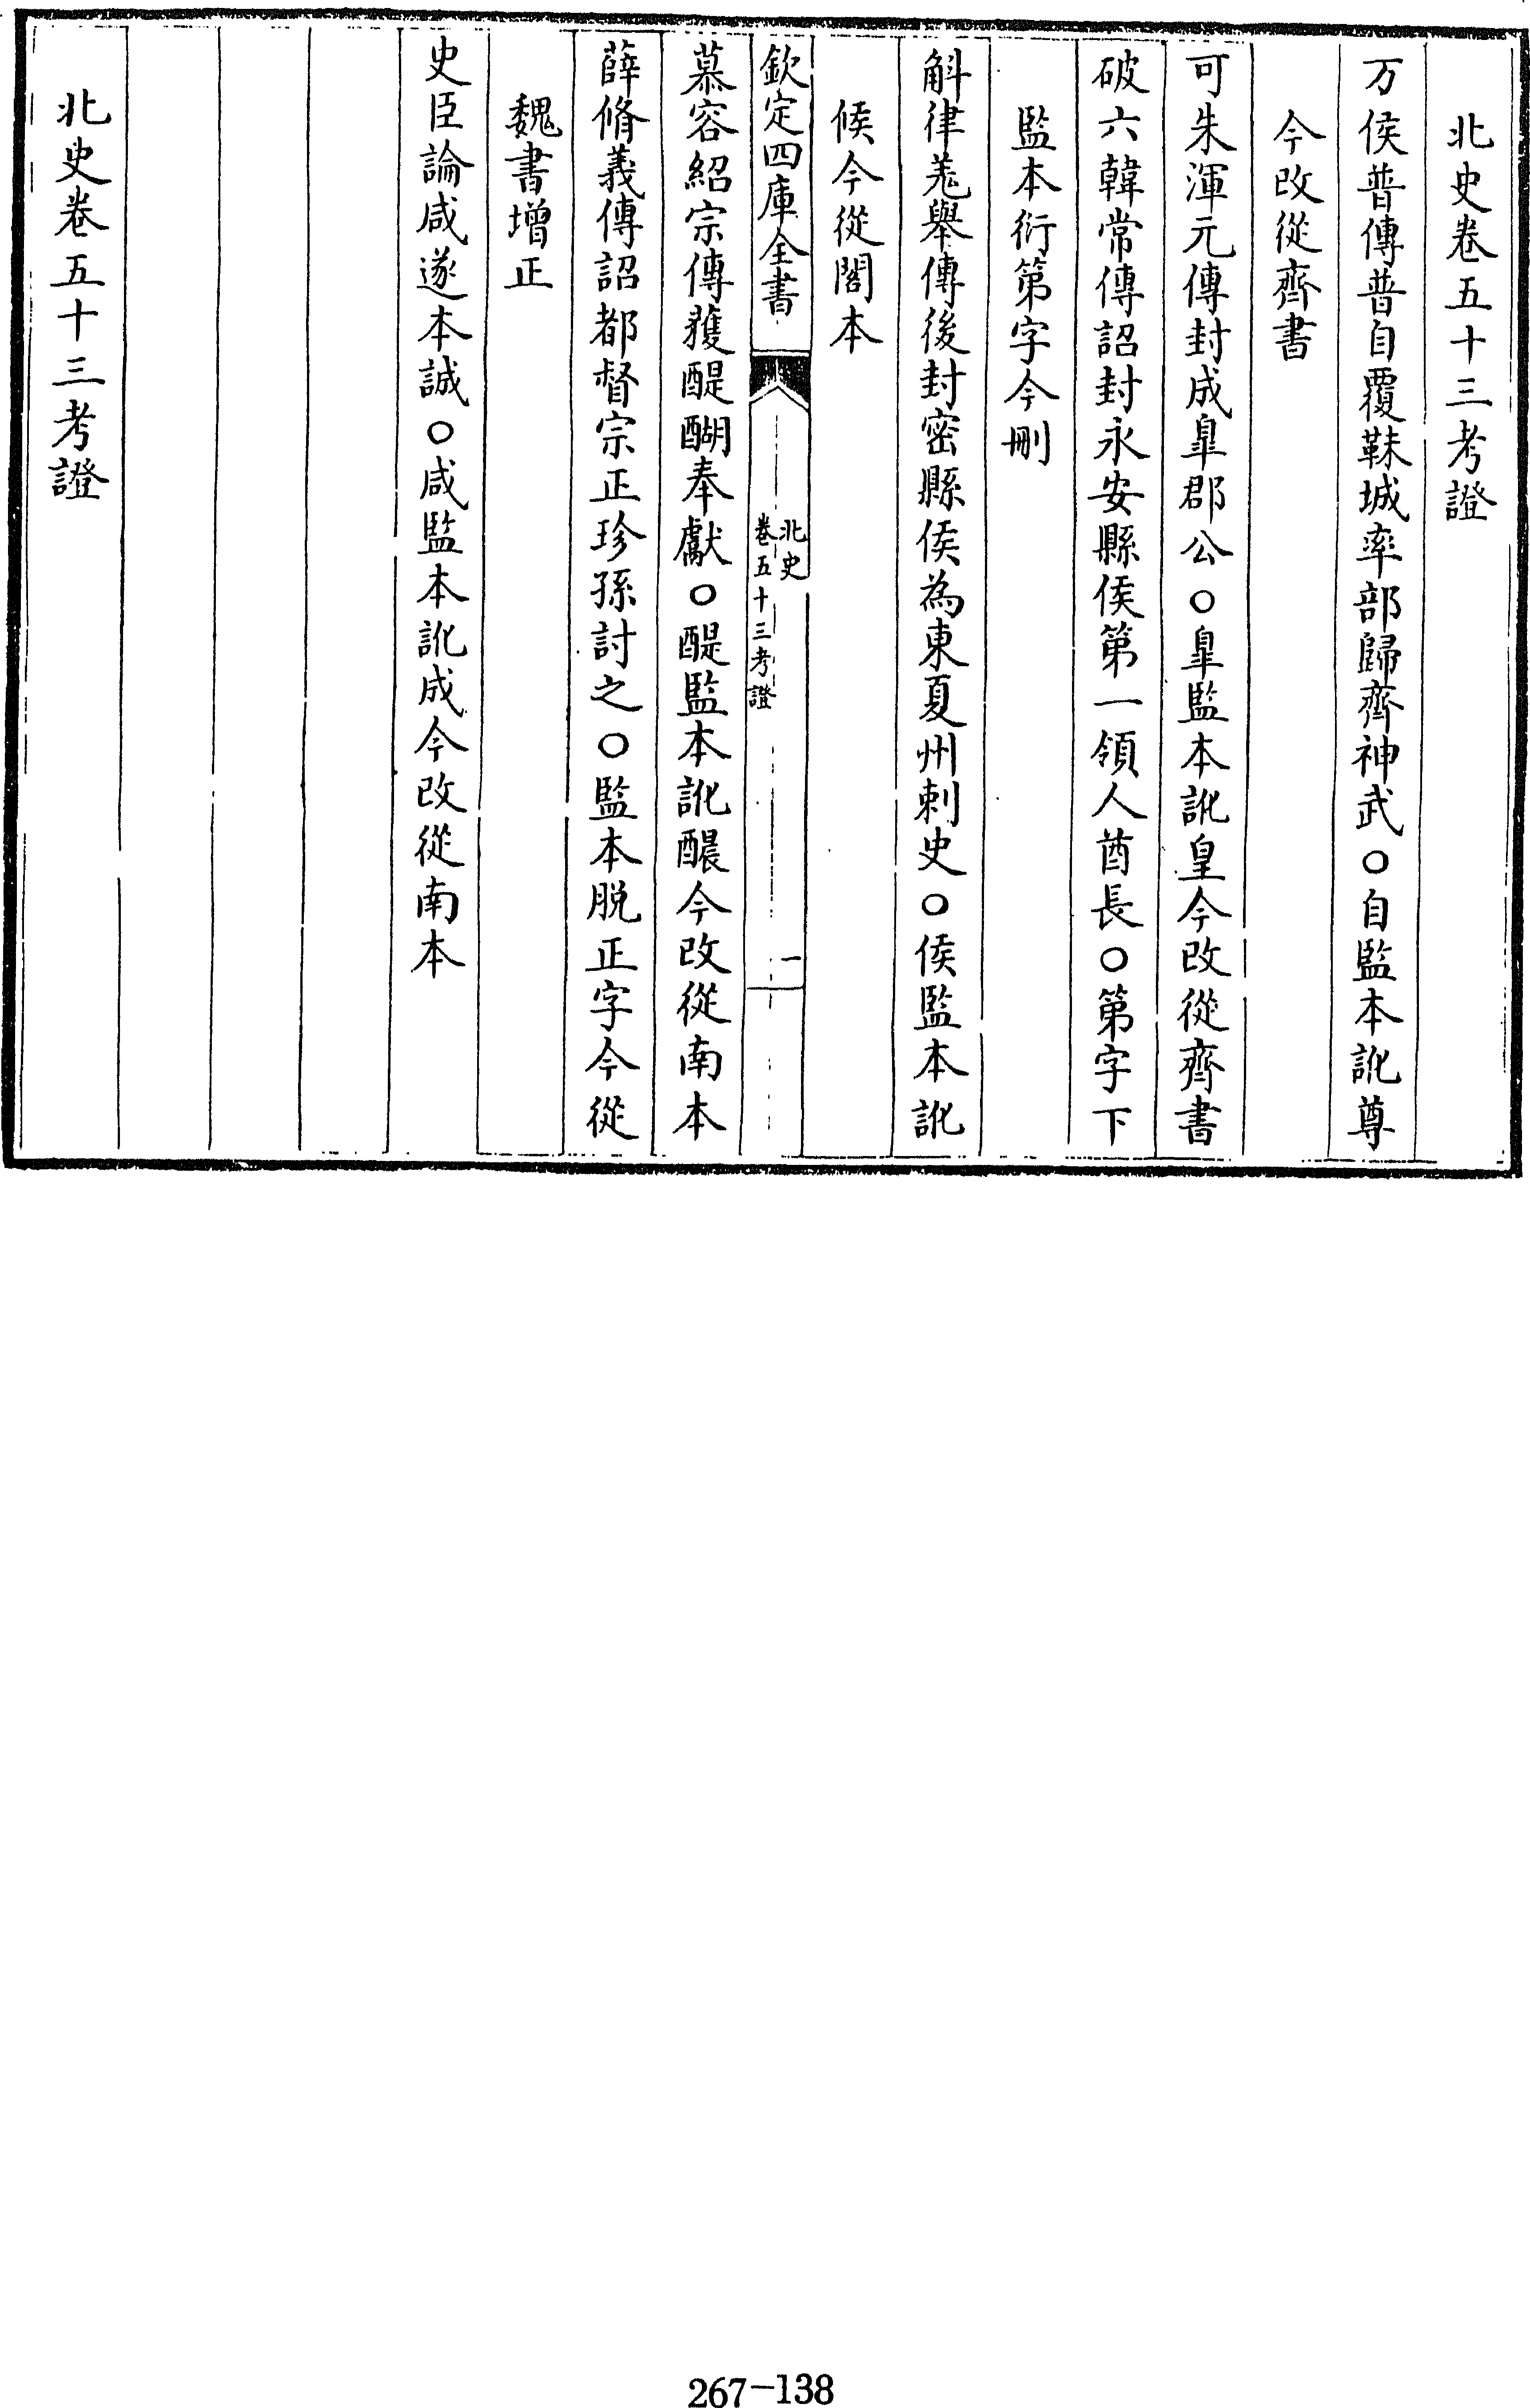 北史卷五十三考證
万俟普傳普自覆靺城率部歸齊神武○自監本訛尊
今改從齊書
可朱渾元傳封成臯郡公○臯監本訛皇今改從齊書
破六韓常傳詔封永安縣侯第一領人酋長○第字下
監本衍第字今刪
斛律羌舉傳後封密縣侯為東夏州刺史○侯監本訛
候今從閣本
欽定四庫全書
北史
卷五十三考證
一
慕容紹宗傳獲醍醐奉獻○醍監本訛醲今改從南本
薛脩義傳詔都督宗正珍孫討之○監本脱正字今從
魏書增正
史臣論咸遂本誠○咸監本訛成今改從南本
北史卷五十三考證
267-138